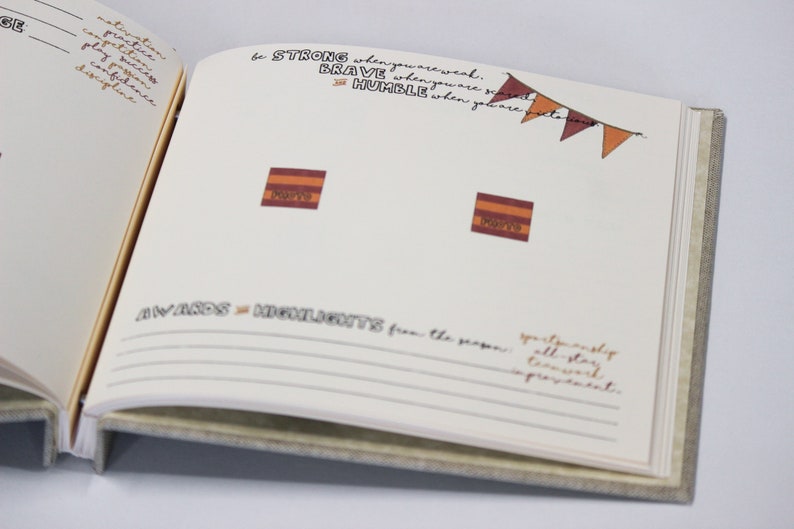 GE:
motivation
practice
competition
play success
passion
confidence
discipline
be STRONG when you are weak,
BRAVE when you are scared,
and HUMBLE when you are victorious.
PHOTO
PHOTO
AWARDS and HIGHLIGHTS from the season:
sportsmanship
all-star
teamwork
improvement.